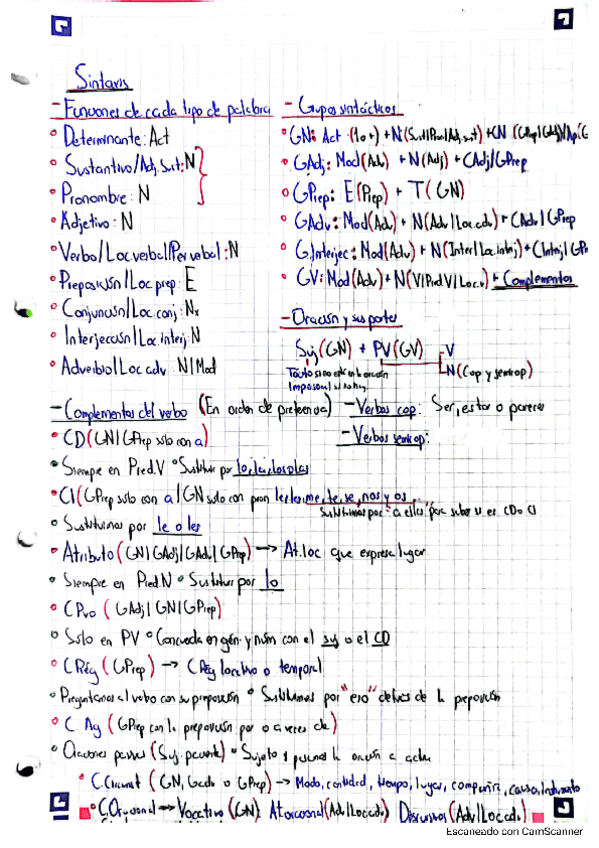 Sintaxis
- Funciones de cada tipo de palabra
• Determinante: Act
• Sustantivo/Adj. Sut: N
• Pronombre: N
• Adjetivo: N
• Verbo/Loc verbal/Per verbal: N
• Preposición/Loc prep: E
• Conjunción/Loc conj: Nx
• Interjección/Loc interj: N
• Adverbio/Loc adv: N/Mod
- Grupos sintácticos
• GN: Act (1 o +) + N(Sust/Pron/Adj. sut) + CN
• GAdj: Mod(Adv) + N(Adj) + CAdj/GPrep
• GPrep: E(Prep) + T(GN)
• GAdv: Mod(Adv) + N(Adv/Loc.adv) + CAdv/GPrep
• G.Interjec: Mod(Adv) + N(Inter/Loc intej) + CInterj/GPr
• GV: Mod(Adv) + N(V/Perd.V/Loc.v) + Complementos
- Oración y sus partes
Suj(GN) + PV(GV) - V
N(Cop y semicop)
Tácito si no está en la oración
Impersonal si no hay
- Verbos cop: Ser, estar o parecer
- Verbos semicop:
- Complementos del verbo (En orden de preferencia)
• CD(GN/GPrep solo con a)
• Siempre en Pred.V • Sustituir por lo, la, los o las
• CI(GPrep solo con a/GN solo con pron le, les, me, te, se, nos y os
Sustituimos por "a ellos" para saber si es CD o CI
• Sustituimos por le o les
• Atributo (GN/GAdj/GAdv/GPrep) → At.loc que expresa lugar
• Siempre en Pred.N • Sustituir por lo
• CPvo (GAdj/GN/GPrep)
• Solo en PV • Concuerda en gén. y núm con el suj o el CD
• CRég (GPrep) → CRég locativo o temporal
• Preguntamos al verbo con su preposición • Sustituimos por "eso" detrás de la preposición
• C. Ag (GPrep con la preposición por o a veces de)
• Oraciones pasivas (Suj. paciente) • Sujeto si pasamos la oración a activa
• C.Circunst (GN, GAdv o GPrep) → Modo, cantidad, tiempo, lugar, compañía, causa, instrumento
• C.Oracional → Vocativo (GN) At oracional (Adv/Loc adv) Discursivos (Adv/Loc adv.)
Escaneado con CamScanner